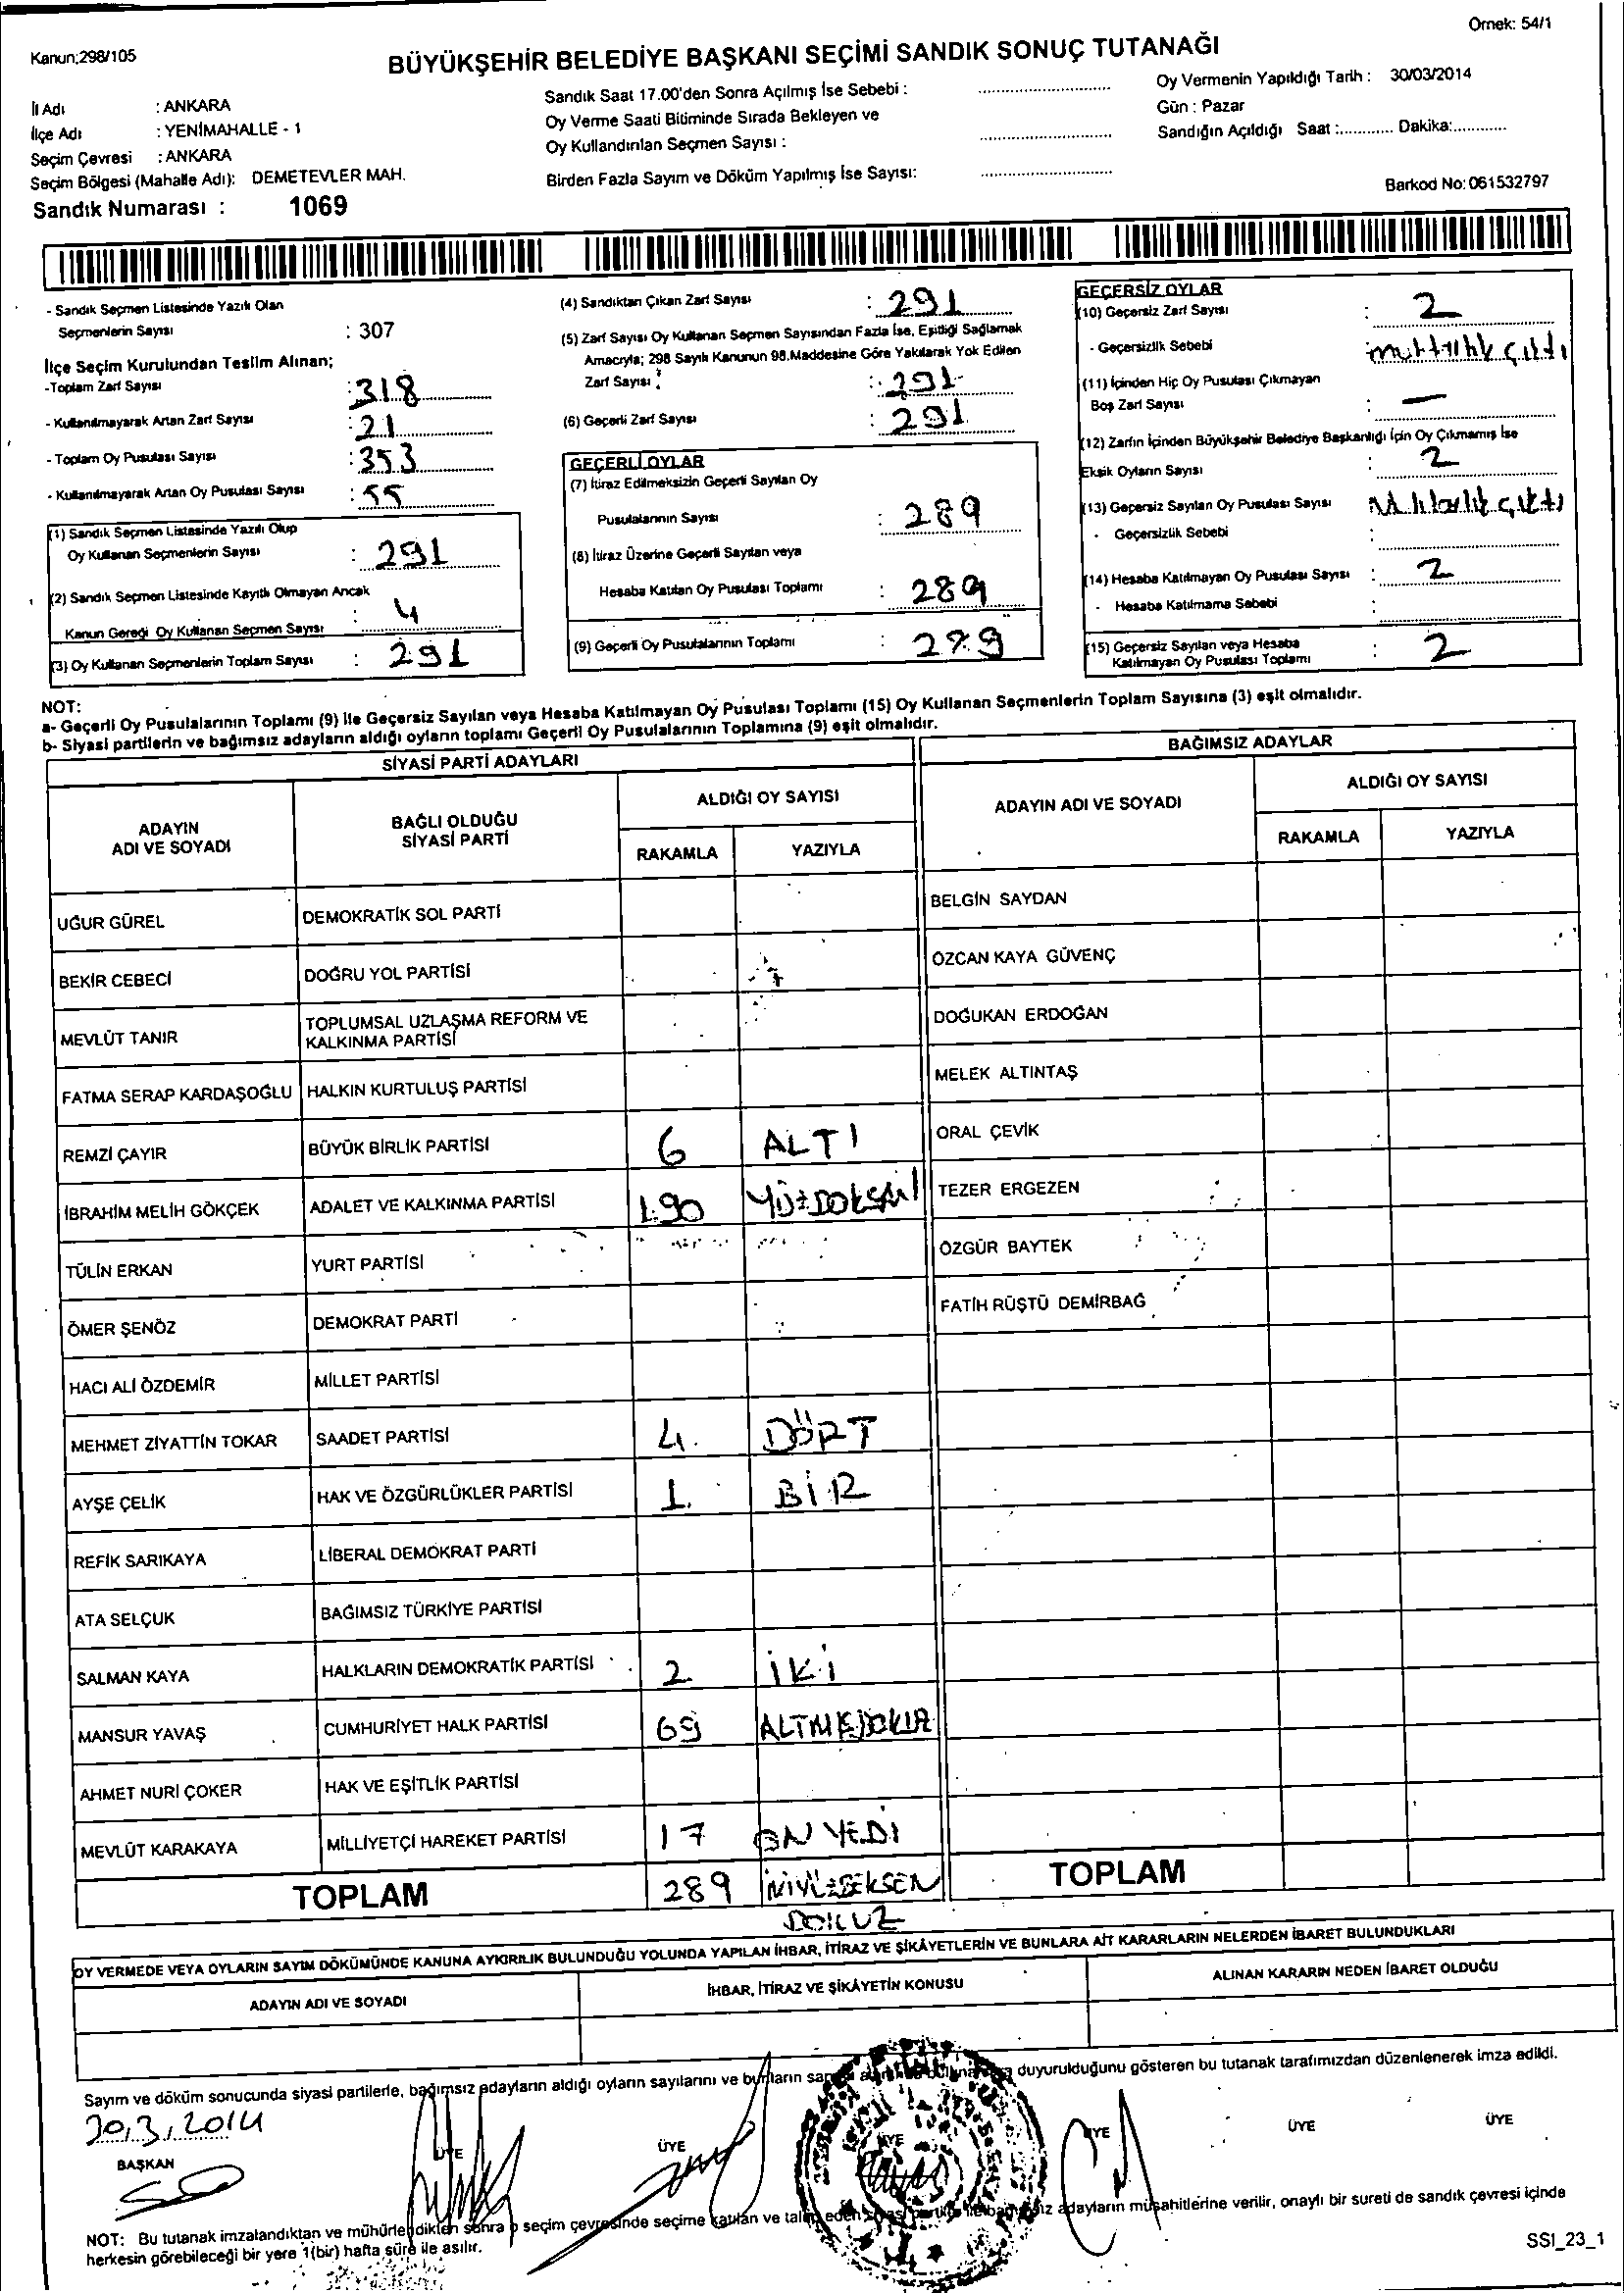 Örnek: 54/1
Kanun;298/105
BÜYÜKŞEHİR BELEDİYE BAŞKANI SEÇİMİ SANDIK SONUÇ TUTANAĞI
İl Adı : ANKARA
İlçe Adı : YENİMAHALLE - 1
Seçim Çevresi : ANKARA
Seçim Bölgesi (Mahalle Adı): DEMETEVLER MAH.
Sandık Numarası : 1069
Sandık Saat 17.00'den Sonra Açılmış İse Sebebi :
Oy Verme Saati Bitiminde Sırada Bekleyen ve
Oy Kullandırılan Seçmen Sayısı :
Birden Fazla Sayım ve Döküm Yapılmış İse Sayısı:
Oy Vermenin Yapıldığı Tarih : 30/03/2014
Gün : Pazar
Sandığın Açıldığı Saat :............ Dakika:............
Barkod No: 061532797
- Sandık Seçmen Listesinde Yazılı Olan
Seçmenlerin Sayısı : 307
İlçe Seçim Kurulundan Teslim Alınan;
-Toplam Zarf Sayısı : 318
- Kullanılmayarak Artan Zarf Sayısı : 21
- Toplam Oy Pusulası Sayısı : 353
- Kullanılmayarak Artan Oy Pusulası Sayısı : 55
(1) Sandık Seçmen Listesinde Yazılı Olup
Oy Kullanan Seçmenlerin Sayısı : 291
(2) Sandık Seçmen Listesinde Kayıtlı Olmayan Ancak
Kanun Gereği Oy Kullanan Seçmen Sayısı : 4
(3) Oy Kullanan Seçmenlerin Toplam Sayısı : 291
(4) Sandıktan Çıkan Zarf Sayısı : 291
(5) Zarf Sayısı Oy Kullanan Seçmen Sayısından Fazla İse, Eşitliği Sağlamak
Amacıyla; 298 Sayılı Kanunun 98.Maddesine Göre Yakılarak Yok Edilen
Zarf Sayısı : 291
(6) Geçerli Zarf Sayısı : 291
GEÇERLİ OYLAR
(7) İtiraz Edilmeksizin Geçerli Sayılan Oy
Pusulalarının Sayısı : 289
(8) İtiraz Üzerine Geçerli Sayılan veya
Hesaba Katılan Oy Pusulası Toplamı : 289
(9) Geçerli Oy Pusulalarının Toplamı : 289
GEÇERSİZ OYLAR
(10) Geçersiz Zarf Sayısı : 2
- Geçersizlik Sebebi çıktı
(11) İçinden Hiç Oy Pusulası Çıkmayan
Boş Zarf Sayısı : —
(12) Zarfın İçinden Büyükşehir Belediye Başkanlığı İçin Oy Çıkmamış İse
Eksik Oyların Sayısı : 2
(13) Geçersiz Sayılan Oy Pusulası Sayısı çıktı
- Geçersizlik Sebebi :
(14) Hesaba Katılmayan Oy Pusulası Sayısı : 2
- Hesaba Katılmama Sebebi :
(15) Geçersiz Sayılan veya Hesaba
Katılmayan Oy Pusulası Toplamı : 2
NOT:
a- Geçerli Oy Pusulalarının Toplamı (9) ile Geçersiz Sayılan veya Hesaba Katılmayan Oy Pusulası Toplamı (15) Oy Kullanan Seçmenlerin Toplam Sayısına (3) eşit olmalıdır.
b- Siyasi partilerin ve bağımsız adayların aldığı oyların toplamı Geçerli Oy Pusulalarının Toplamına (9) eşit olmalıdır.
SİYASİ PARTİ ADAYLARI
BAĞIMSIZ ADAYLAR
ADAYIN ADI VE SOYADI
BAĞLI OLDUĞU SİYASİ PARTİ
ALDIĞI OY SAYISI
RAKAMLA YAZIYLA
ADAYIN ADI VE SOYADI
ALDIĞI OY SAYISI
RAKAMLA YAZIYLA
UĞUR GÜREL DEMOKRATİK SOL PARTİ BELGİN SAYDAN
BEKİR CEBECİ DOĞRU YOL PARTİSİ ÖZCAN KAYA GÜVENÇ
MEVLÜT TANIR TOPLUMSAL UZLAŞMA REFORM VE KALKINMA PARTİSİ DOĞUKAN ERDOĞAN
FATMA SERAP KARDAŞOĞLU HALKIN KURTULUŞ PARTİSİ MELEK ALTINTAŞ
REMZİ ÇAYIR BÜYÜK BİRLİK PARTİSİ 6 ALTI ORAL ÇEVİK
İBRAHİM MELİH GÖKÇEK ADALET VE KALKINMA PARTİSİ 190 YÜZDOKSAN TEZER ERGEZEN
TÜLİN ERKAN YURT PARTİSİ ÖZGÜR BAYTEK
ÖMER ŞENÖZ DEMOKRAT PARTİ FATİH RÜŞTÜ DEMİRBAĞ
HACI ALİ ÖZDEMİR MİLLET PARTİSİ
MEHMET ZİYATTİN TOKAR SAADET PARTİSİ 4 DÖRT
AYŞE ÇELİK HAK VE ÖZGÜRLÜKLER PARTİSİ 1 BİR
REFİK SARIKAYA LİBERAL DEMOKRAT PARTİ
ATA SELÇUK BAĞIMSIZ TÜRKİYE PARTİSİ
SALMAN KAYA HALKLARIN DEMOKRATİK PARTİSİ 2 İKİ
MANSUR YAVAŞ CUMHURİYET HALK PARTİSİ 69
AHMET NURİ ÇOKER HAK VE EŞİTLİK PARTİSİ
MEVLÜT KARAKAYA MİLLİYETÇİ HAREKET PARTİSİ 17 ON YEDİ
TOPLAM 289 İKİYÜZSEKSEN TOPLAM
DOKUZ
OY VERMEDE VEYA OYLARIN SAYIM DÖKÜMÜNDE KANUNA AYKIRILIK BULUNDUĞU YOLUNDA YAPILAN İHBAR, İTİRAZ VE ŞİKÂYETLERİN VE BUNLARA AİT KARARLARIN NELERDEN İBARET BULUNDUKLARI
ADAYIN ADI VE SOYADI İHBAR, İTİRAZ VE ŞİKÂYETİN KONUSU ALINAN KARARIN NEDEN İBARET OLDUĞU
Sayım ve döküm sonucunda siyasi partilerle, bağımsız adayların aldığı oyların sayılarını ve bunların duyurulduğunu gösteren bu tutanak tarafımızdan düzenlenerek imza edildi.
30.3.2014
BAŞKAN ÜYE ÜYE ÜYE ÜYE ÜYE ÜYE
NOT: Bu tutanak imzalandıktan ve mühürlendikten sonra o seçim çevresinde seçime katılan ve talep eden siyasi partiler ile bağımsız adayların müşahitlerine verilir, onaylı bir sureti de sandık çevresi içinde
herkesin görebileceği bir yere 1(bir) hafta süre ile asılır.
SSI_23_1